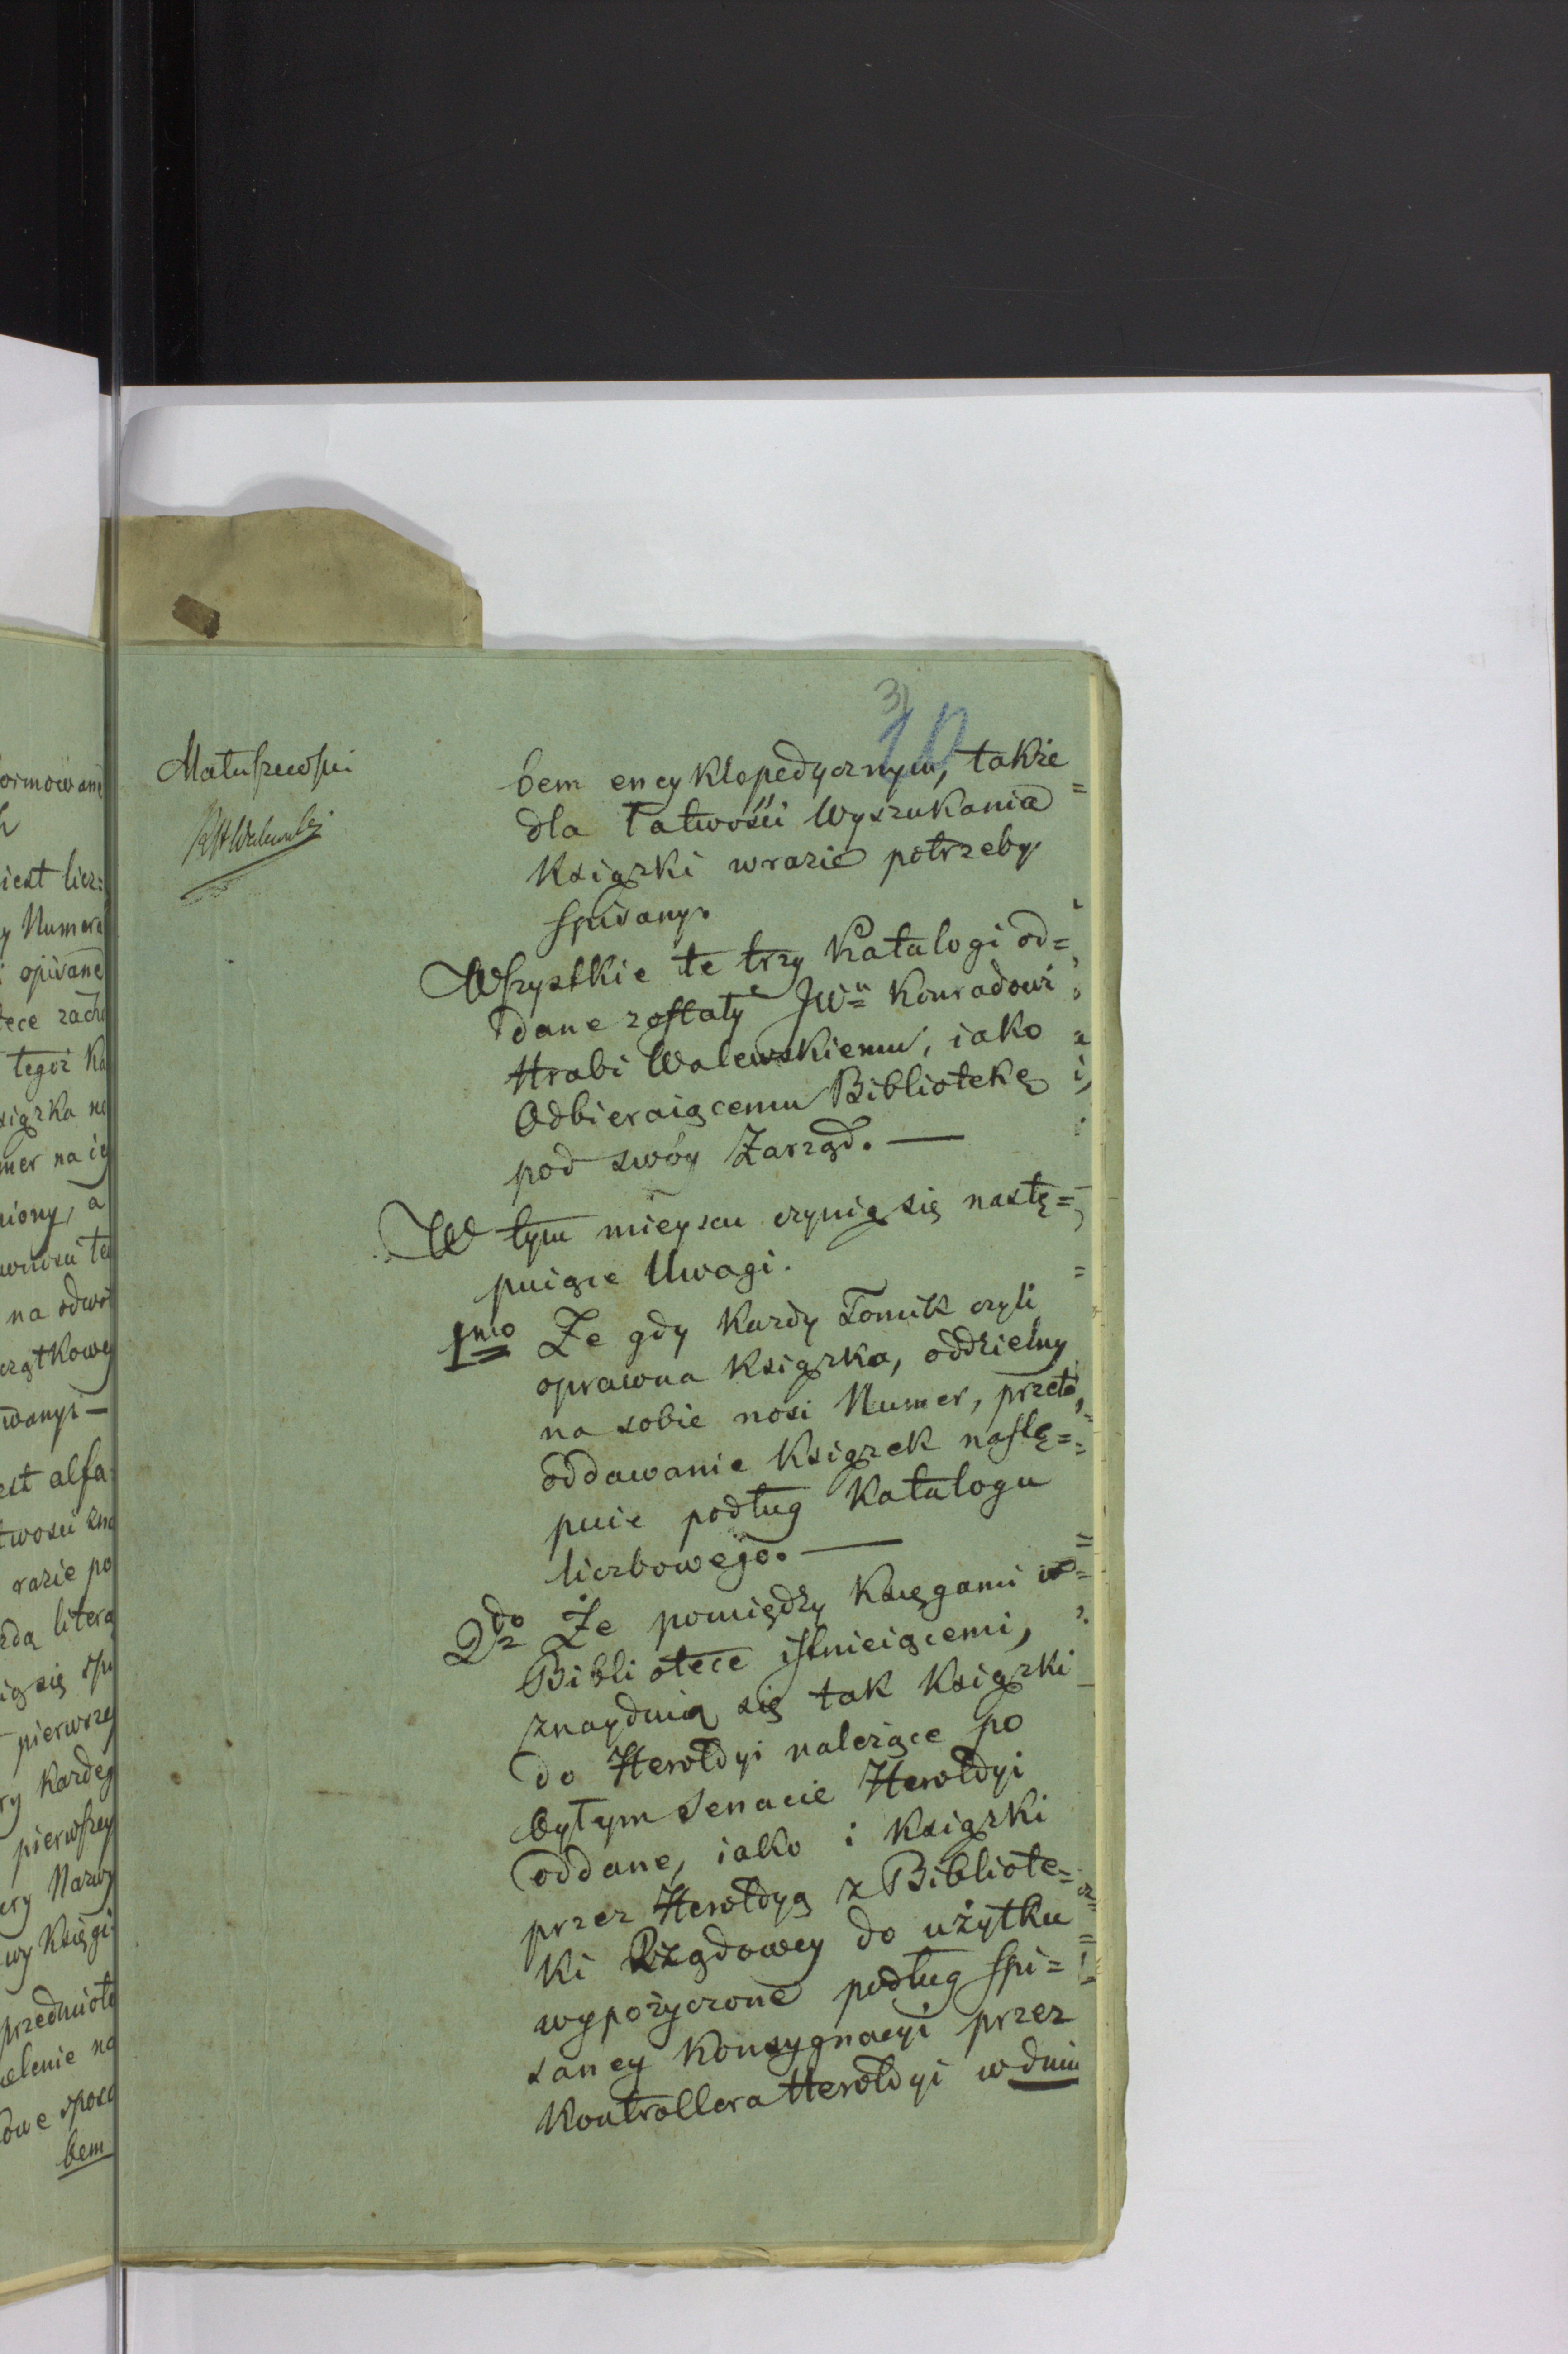 ormowane
iest licz:
y Numera
i opisane
tece zacho
tegoż Ka
siążka na
mer na iey
niony, a
na odwro
czątkowey
wanyi —
est alfa:
twości zna
razie po
żdą literą
ią się spi
pierwszey
ry każdeg
pierwszey
ery Nazwy
wy Księgi
przedmioto
elenie na
owe sposo
bem
Matuszewski
KHWalewski
3
10
bem encyklopedycznym, także
dla łatwości wyszukania
książki wrazie potrzeby
spisany.
Wszystkie te trzy Katalogi od=
dane zostały JWu Konradowi
Hrabi Walewskiemu, iako
Odbieraiącemu Bibliotekę
pod swóy Zarząd. —
W tym mieyscu czynią się nastę=
puiące Uwagi.
1mo Że gdy każdy Tomik czyli
oprawna książka, oddzielny
na sobie nosi Numer, przeto,
oddawanie książek nastę=
puie podług Katalogu
liczbowego. —
2do Że pomiędzy księgami w
Bibliotece istnieiącemi,
znayduią się tak książki
do Heroldyi należące po
byłym Senacie Heroldyi
oddane, iako i książki
przez Heroldyą z Bibliote=
ki Rządowey do użytku
wypożyczone podług spi=
saney Konsygnacyi przez
Kontrollera Heroldyi w dniu